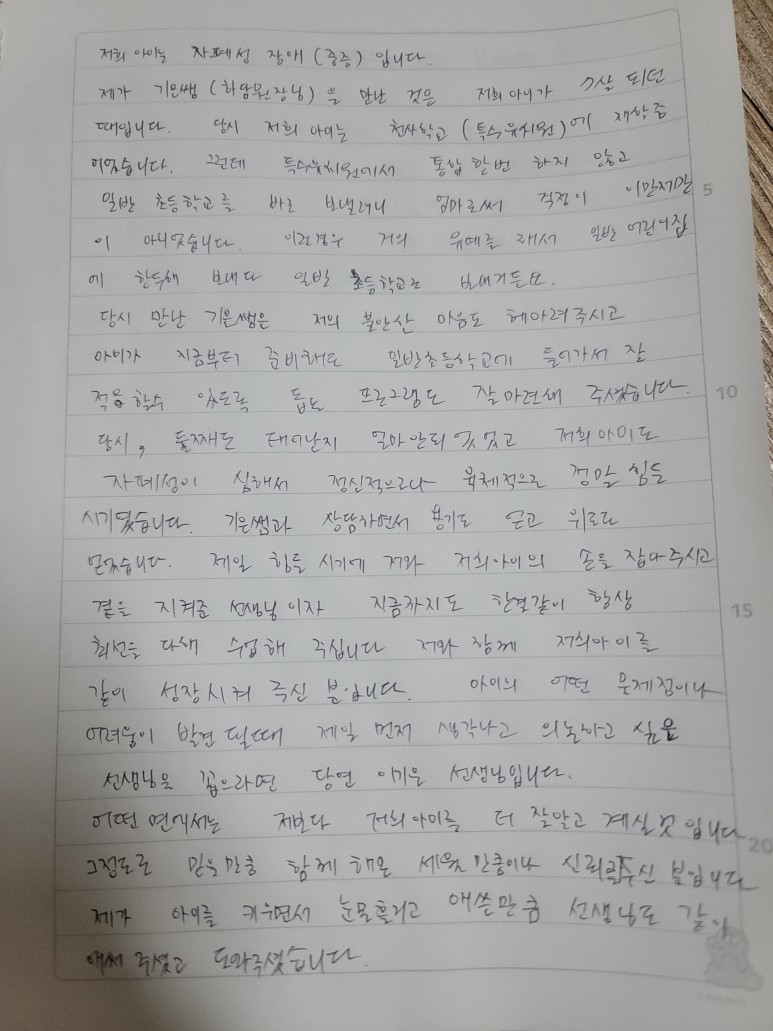 저희 아이는 자폐성 장애 (중증) 입니다.
제가 기은쌤 (화담원장님) 을 만난 것은 저희 아이가 7살 되던
때입니다. 당시 저희 아이는 천사학교 (특수유치원)에 재학중
이었습니다. 그런데 특수유치원에서 통합 한번 하지 않고
일반 초등학교를 바로 보낼려니 엄마로써 걱정이 이만저만
5
이 아니였습니다. 이런경우 거의 유예를 해서 일반 어린이집
에 한두해 보내다 일반 초등학교로 보내거든요.
당시 만난 기은쌤은 저의 불안산 마음도 헤아려주시고
아이가 지금부터 준비해도 일반초등학교에 들어가서 잘
적응 할수 있도록 프로그램도 잘 마련해 주셨습니다.
10
당시, 둘째도 태어난지 얼마안되었었고 저희아이도
자폐성이 심해서 정신적으로나 육체적으로 정말 힘든
시기였습니다. 기은쌤과 상담하면서 용기도 얻고 위로도
얻었습니다. 제일 힘들 시기에 저와 저희아이의 손을 잡아주시고
곁을 지켜준 선생님이자 지금까지도 한결같이 항상
15
최선을 다해 수업해 주십니다 저와 함께 저희아이를
같이 성장시켜 주신 분입니다. 아이의 어떤 문제점이나
어려움이 발견 될때 제일 먼저 생각나고 의논하고 싶은
선생님을 꼽으라면 당연 이기은 선생님입니다.
어떤 면에서는 저보다 저희아이를 더 잘알고 계실 것 입니다
20
그정도로 믿을만큼 함께 해온 세월 만큼이나 신뢰를주신 분입니다
제가 아이를 키우면서 눈물흘리고 애쓴만큼 선생님도 같이
애써 주셨고 도와주셨습니다.